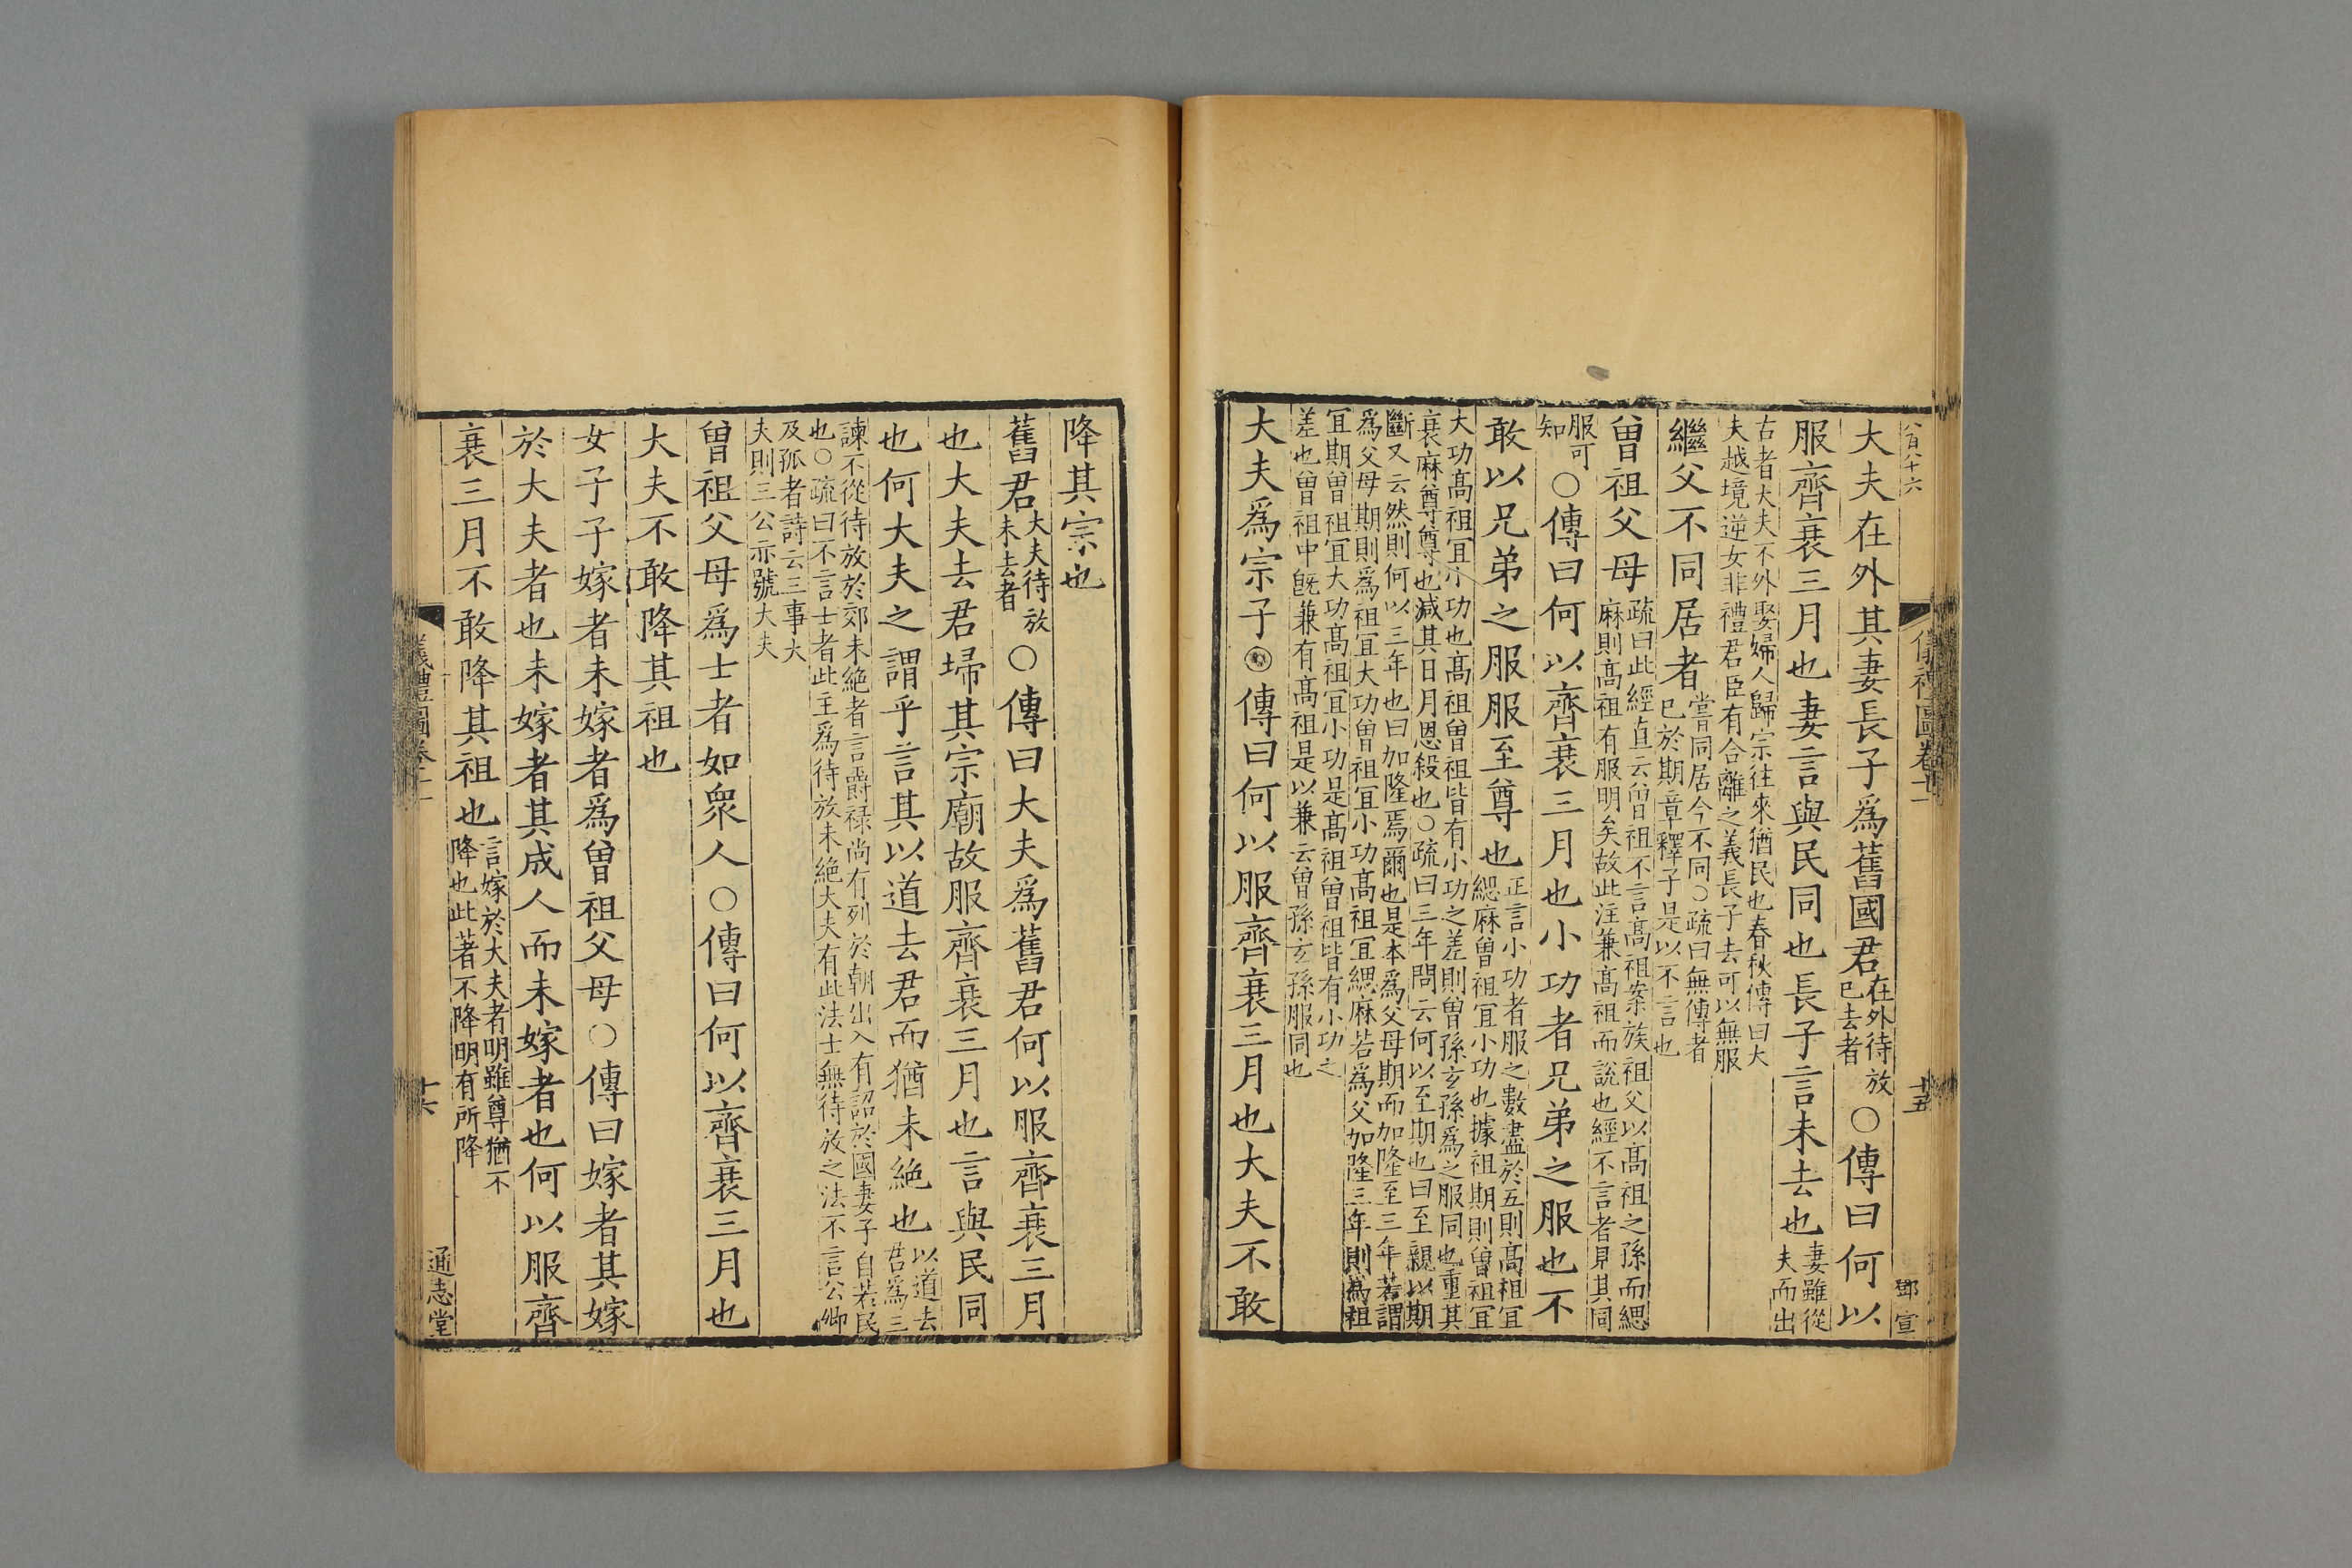 八百八十六
儀禮圖卷十一
十五
鄧宣
大夫在外其妻長子爲舊國君在外待放已去者○傳曰何以
服齊衰三月也妻言與民同也長子言未去也妻雖從夫而出
古者大夫不外娶婦人歸宗往來猶民也春秋傳曰大
夫越境逆女非禮君臣有合離之義長子去可以無服
繼父不同居者嘗同居今不同○疏曰無傳者已於期章釋子是以不言也
曾祖父母疏曰此經直云曾祖不言高祖案族祖父以高祖之孫而緦麻則高祖有服明矣故此注兼高祖而說也經不言者見其同
服可知○傳曰何以齊衰三月也小功者兄弟之服也不
敢以兄弟之服服至尊也正言小功者服之數盡於五則高祖宜緦麻曾祖宜小功也據祖期則曾祖宜
大功高祖宜小功也高祖曾祖皆有小功之差則曾孫玄孫爲之服同也重其
衰麻尊尊也減其日月恩殺也○疏曰三年問云何以至期也曰至親以期
斷又云然則何以三年也曰加隆焉爾也是本爲父母期而加隆至三年若謂
爲父母期則爲祖宜大功曾祖宜小功高祖宜緦麻若爲父加隆三年則爲祖
宜期曾祖宜大功高祖宜小功是高祖曾祖皆有小功之
差也曾祖中既兼有高祖是以兼云曾孫玄孫服同也
大夫爲宗子○傳曰何以服齊衰三月也大夫不敢
降其宗也
舊君大夫待放未去者○傳曰大夫爲舊君何以服齊衰三月
也大夫去君埽其宗廟故服齊衰三月也言與民同
也何大夫之謂乎言其以道去君而猶未絶也以道去君爲三
諫不從待放於郊未絶者言爵禄尚有列於朝出入有詔於國妻子自若民
也○疏曰不言士者此主爲待放未絶大夫有此法士無待放之法不言公卿
及孤者詩云三事大
夫則三公亦號大夫
曾祖父母爲士者如衆人○傳曰何以齊衰三月也
大夫不敢降其祖也
女子子嫁者未嫁者爲曾祖父母○傳曰嫁者其嫁
於大夫者也未嫁者其成人而未嫁者也何以服齊
衰三月不敢降其祖也言嫁於大夫者明雖尊猶不降也此著不降明有所降
儀禮圖卷十一
十六
通志堂